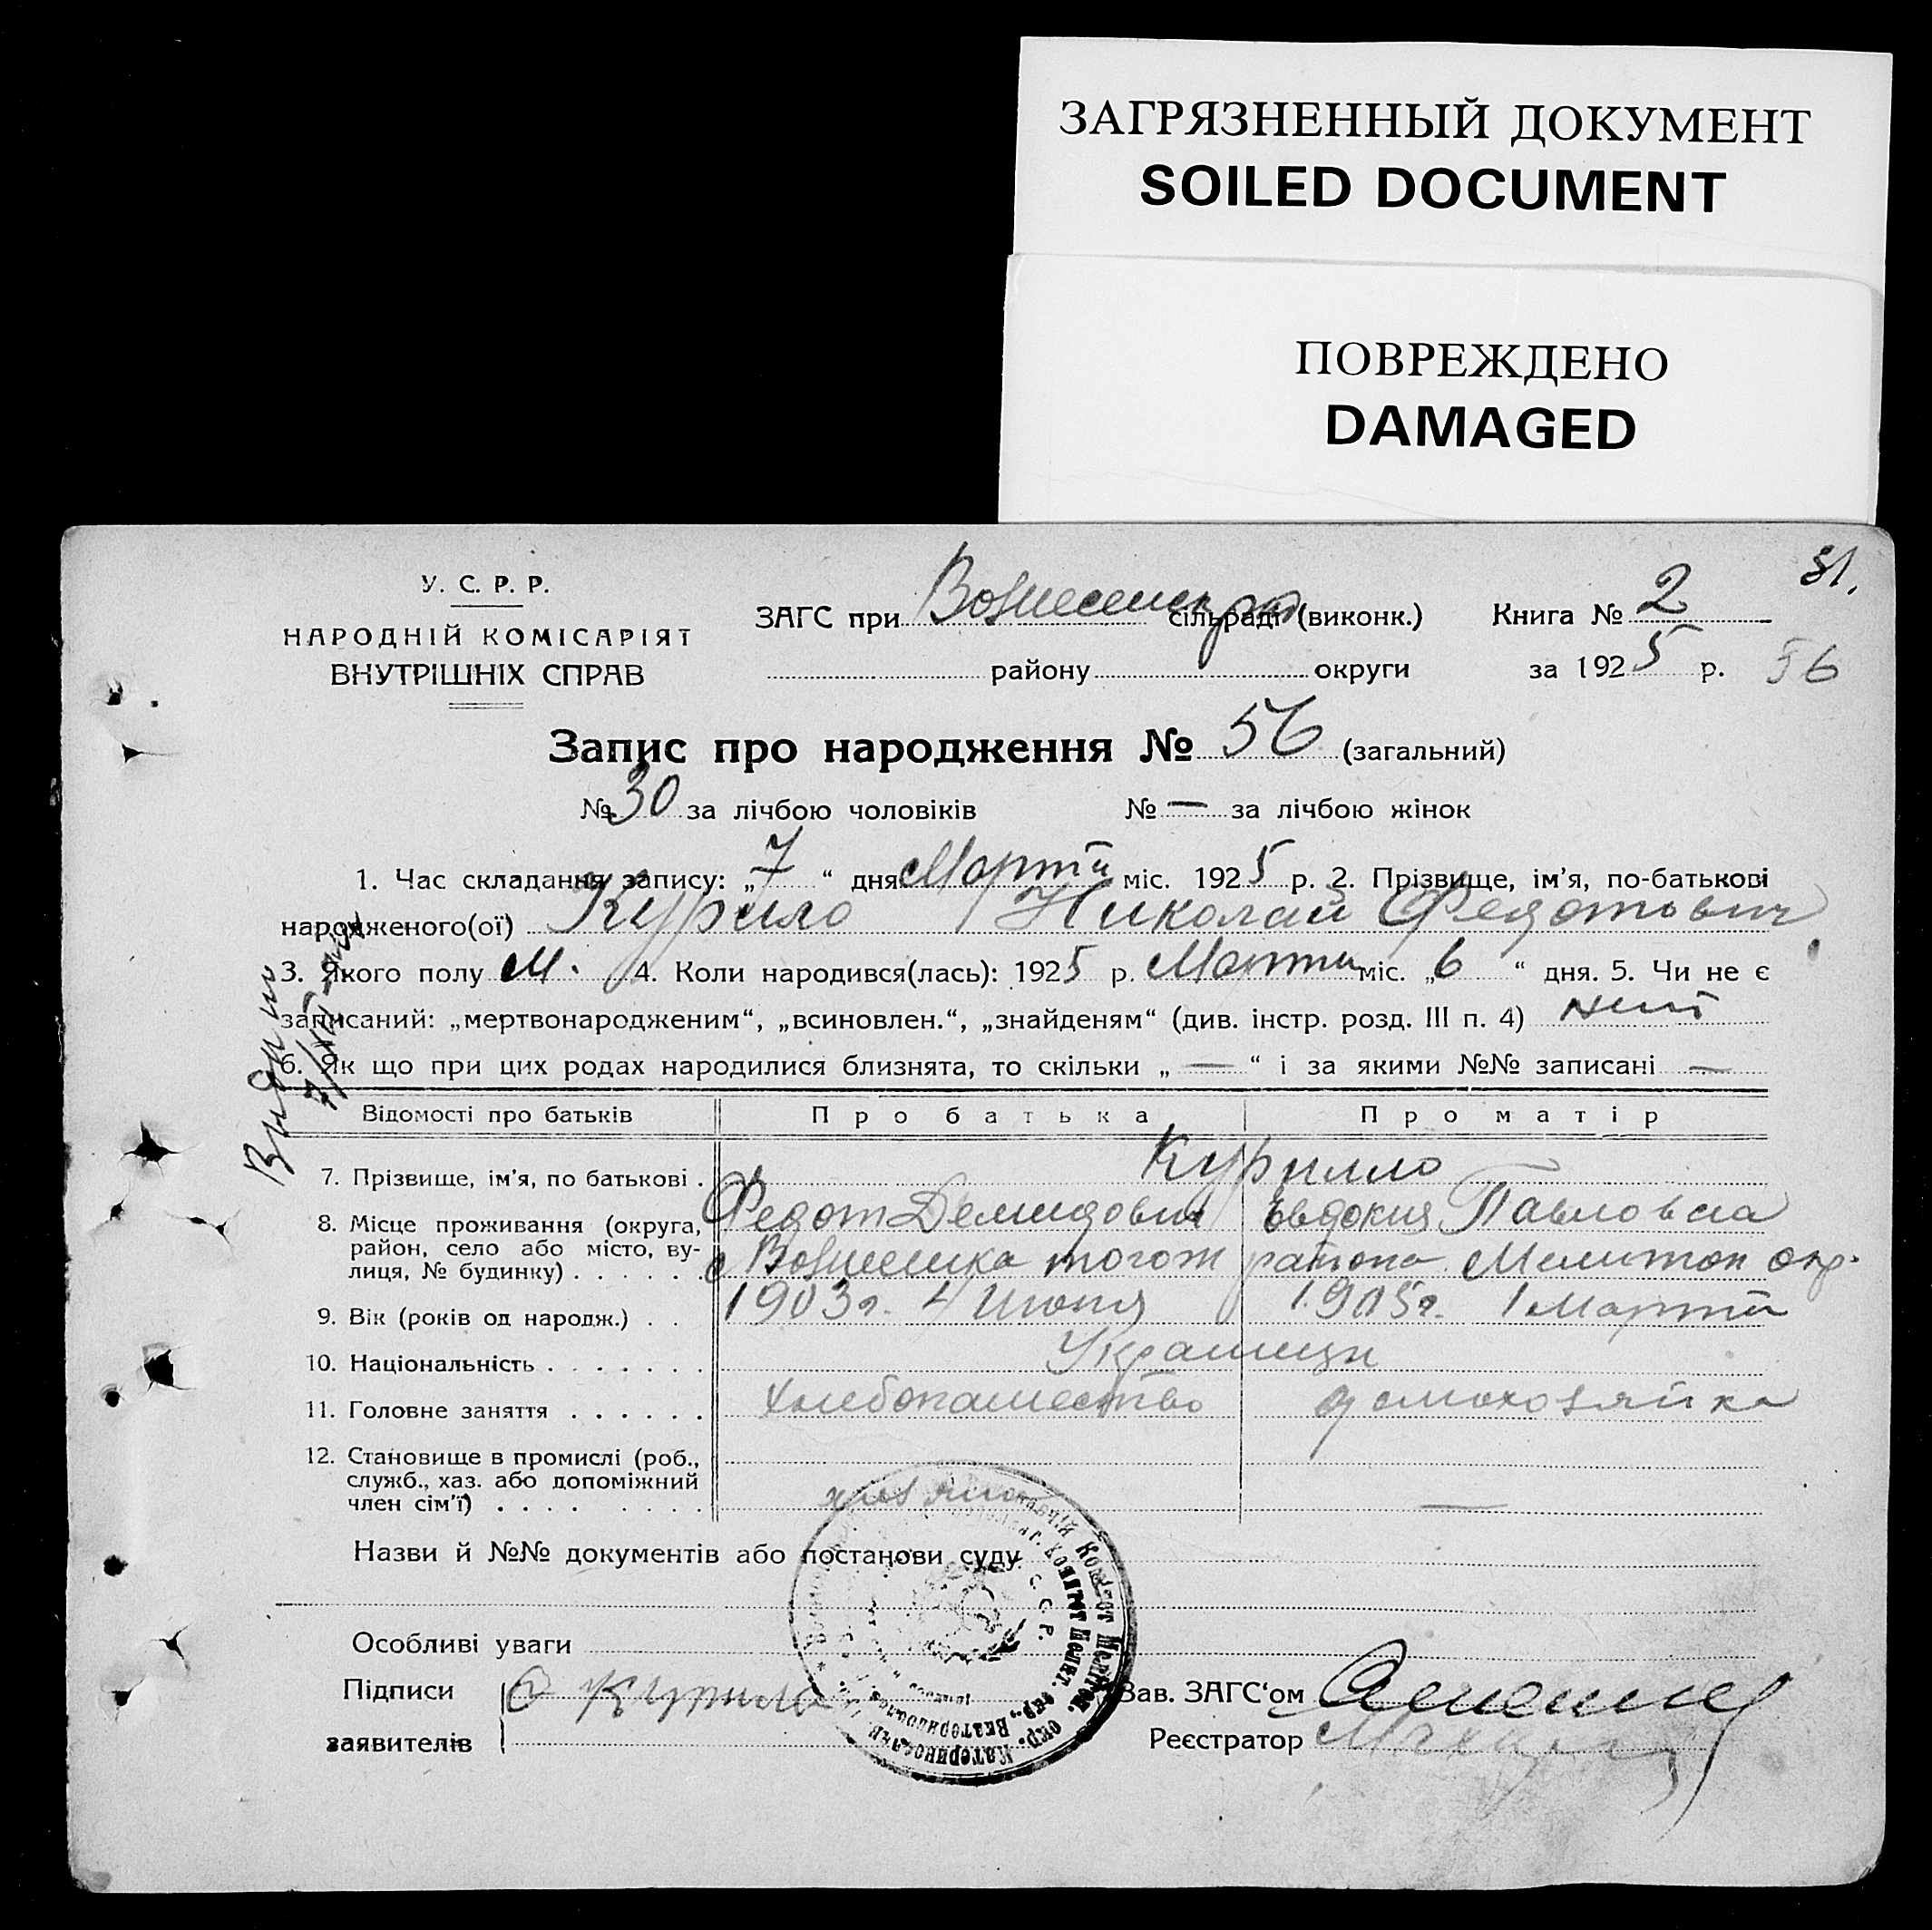 ЗАГРЯЗНЕННЫЙ ДОКУМЕНТ
SOILED DOCUMENT
ПОВРЕЖДЕНО
DAMAGED
31.
У. С. Р. Р.
НАРОДНІЙ КОМІСАРІЯТ
ВНУТРІШНІХ СПРАВ
ЗАГС при Вознесенск сільраді (виконк.) Книга № 2
району округи за 1925 р. 56
Запис про народження № 56 (загальний)
№ 30 за лічбою чоловіків № — за лічбою жінок
1. Час складання запису: „7“ дня Марта міс. 1925 р. 2. Прізвище, ім'я, по-батькові
народженого(ої) Курило Николай Федотович
3. Якого полу м. 4. Коли народився(лась): 1925 р. Марта міс. „6“ дня. 5. Чи не є
записаний: „мертвонародженим“, „всиновлен.“, „знайденям“ (див. інстр. розд. III п. 4) нет
6. Як що при цих родах народилися близнята, то скільки „ — “ і за якими №№ записані —
Відомості про батьків Про батька Про матір
7. Прізвище, ім'я, по батькові . Курилло
Федот Демидович Евдокия Павловна
8. Місце проживання (округа, район, село або місто, вулиця, № будинку) . . . . . . с Вознесенка тогож района Мелитоп окр.
9. Вік (років од народж.) . . 1903 г. 4 Июня 1905 г. 1 Марта
10. Національність . . . . . . . Украинцы
11. Головне заняття . . . . . . Хлебопашество домохозяйка
12. Становище в промислі (роб., служб., хаз. або допоміжний член сім'ї) . . . . . . . . хозяин —
Назви й №№ документів або постанови суду
Особливі уваги
Підписи Курило Зав. ЗАГС‘ом
заявителів Реєстратор